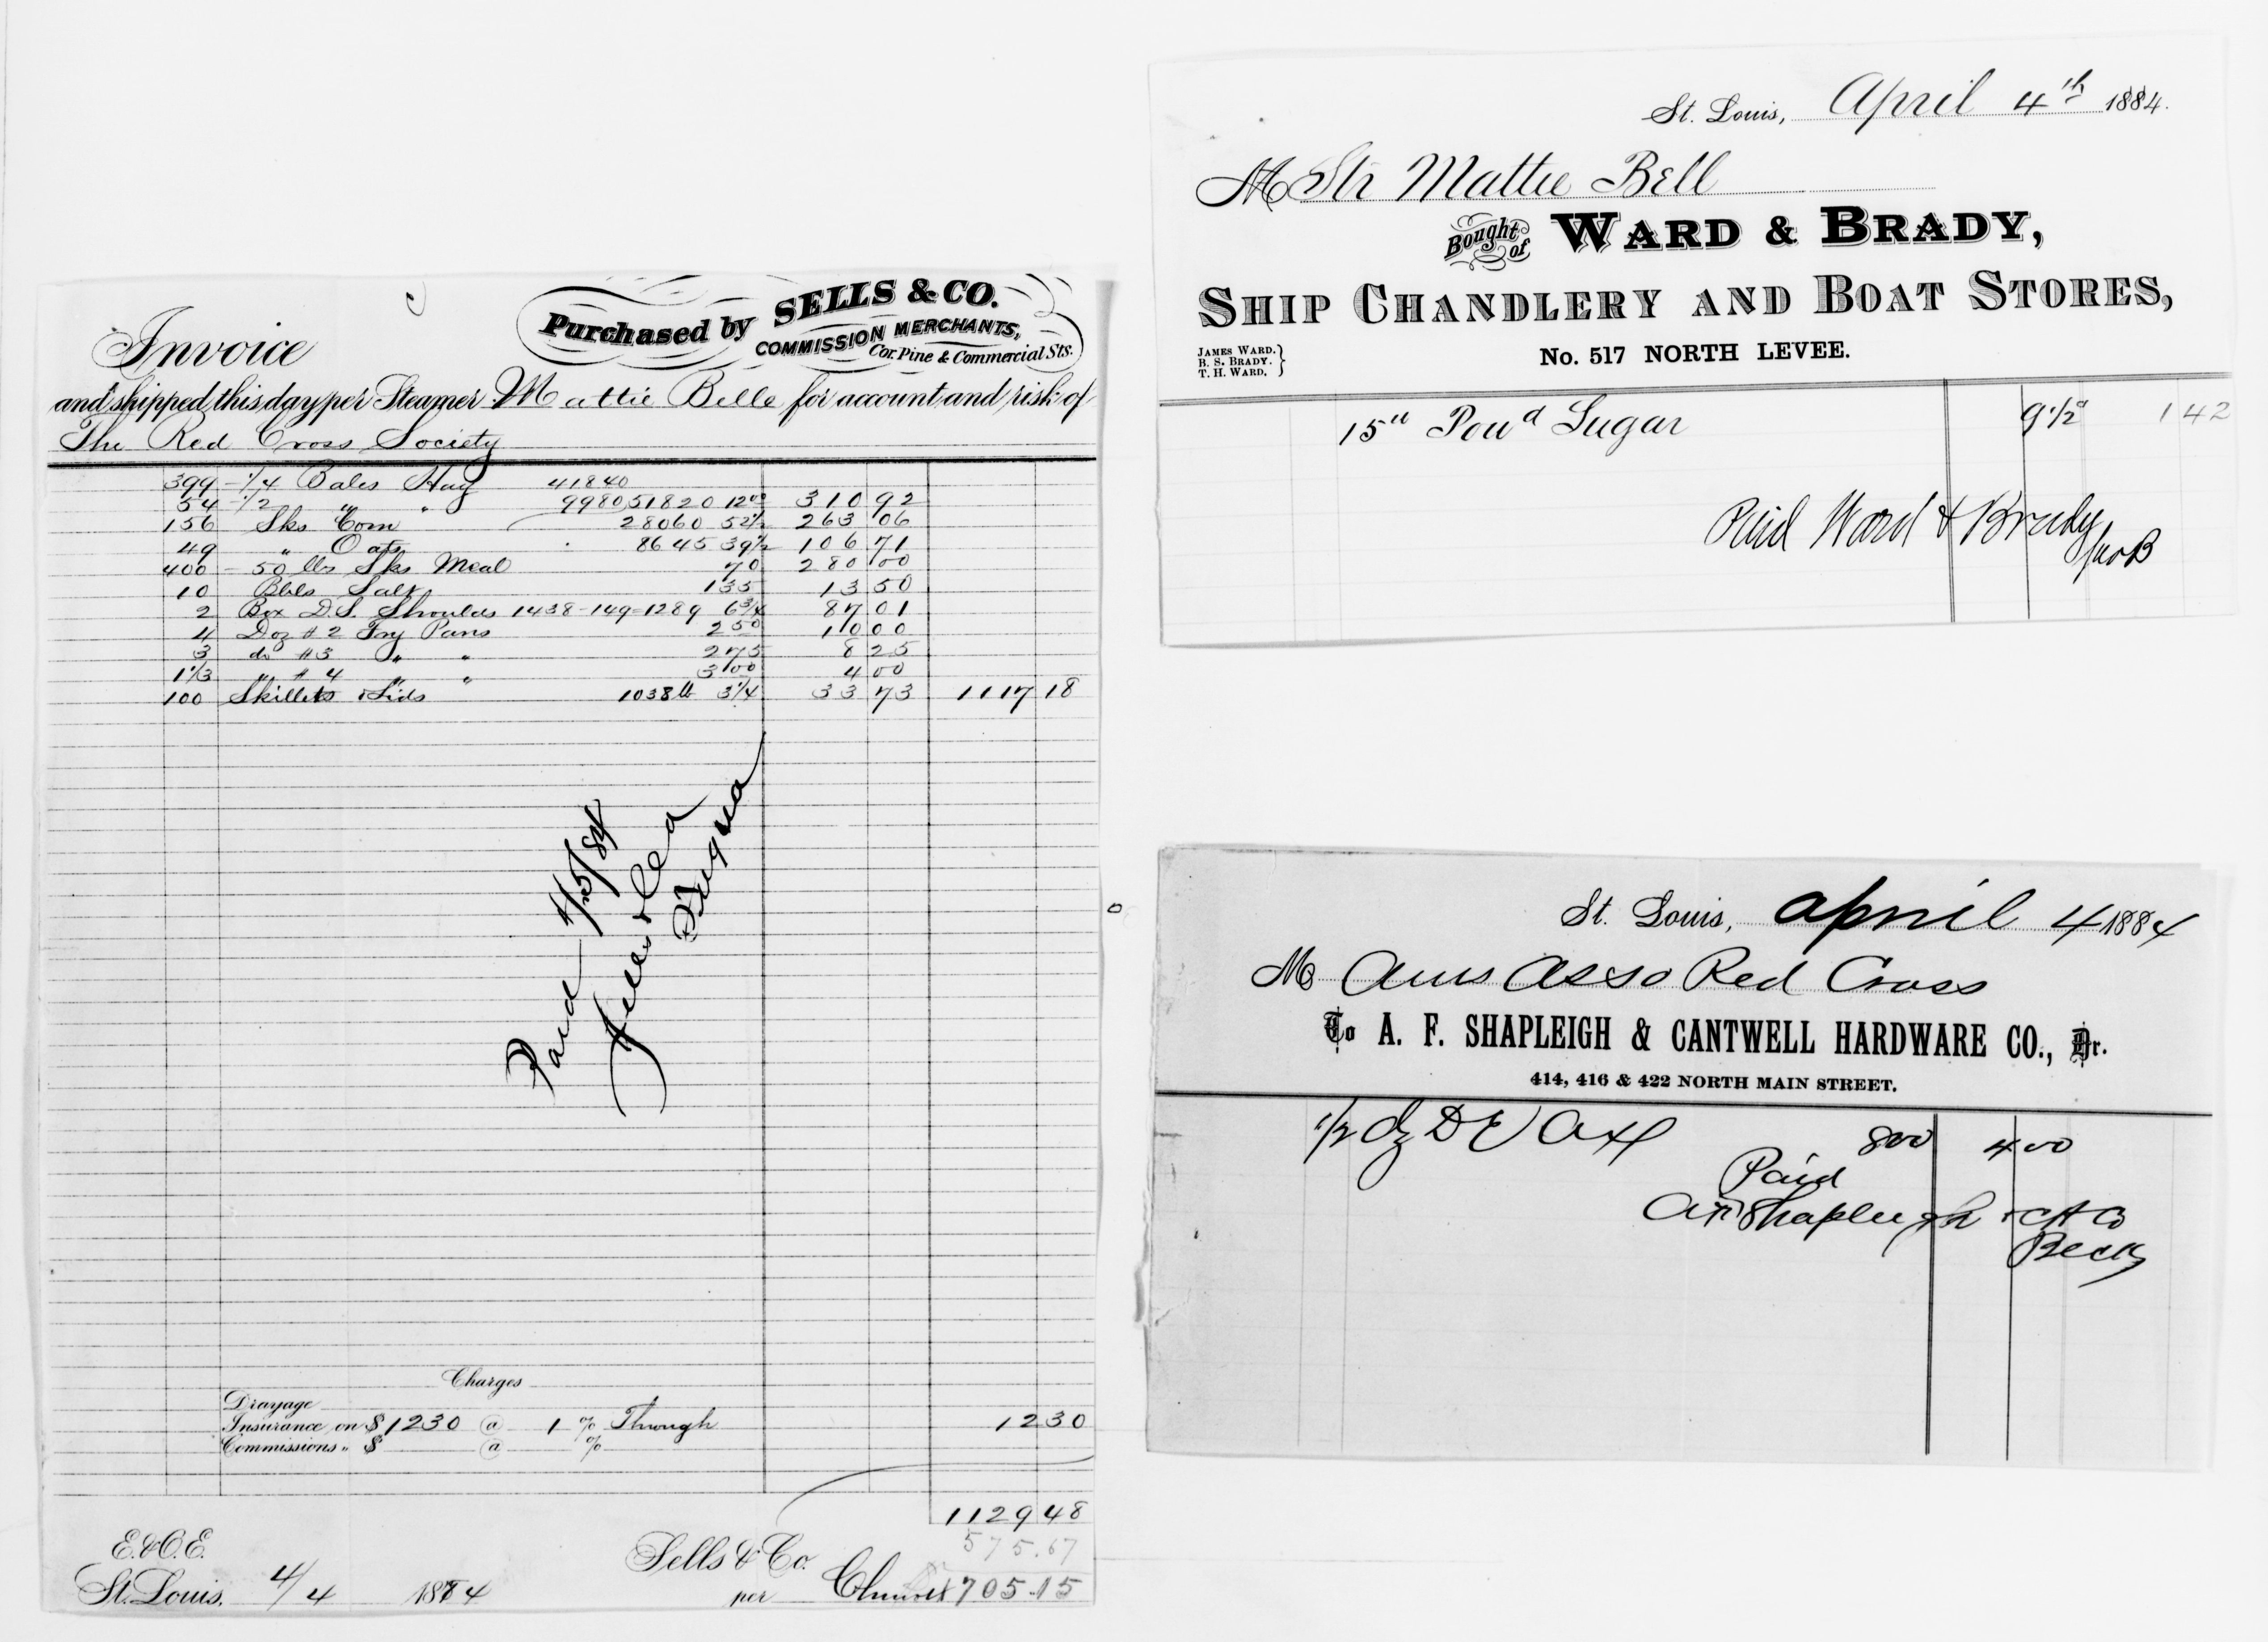 Invoice
Purchased by SELLS & CO.
COMMISSION MERCHANTS,
Cor. Pine & Commercial Sts.
and shipped this day per Steamer Mattie Belle for account and risk of
The Red Cross Society
399 - 1/4 Bales Hay 41840
54 - 1/2 " " 9980 51820 12 00 310 92
156 Sks Corn 28060 52 1/2 263 06
49 " Oats 8645 39 1/2 106 71
400 - 50 lbs Sks Meal 70 280 00
10 Bbls Salt 135 13 50
2 Box D.S. Shoulds 1438 - 149 = 1289 6 3/4 87 01
4 Doz #2 Fry Pans 2 50 10 00
3 do #3 " " 2 75 8 25
1 1/3 " #4 " " 3 00 4 00
100 Skillets & Lids 1038 lb 3 1/4 33 73 1117 18
Paid 4/5/84
Charges
Drayage
Insurance on $ 1230 @ 1 % Through 12 30
Commissions " $ @ %
1129 48
575.67
1705.15
E. & O. E.
Sells & Co.
St. Louis, 4/4 1884
per
St. Louis, April 4th 1884.
M Str Mattie Bell
Bought of WARD & BRADY,
SHIP CHANDLERY AND BOAT STORES,
JAMES WARD.
B. S. BRADY.
T. H. WARD.
No. 517 NORTH LEVEE.
15" Powd Sugar 9 1/2 1 42
Paid Ward & Brady
St. Louis, April 4 1884
M Ams Asso Red Cross
To A. F. SHAPLEIGH & CANTWELL HARDWARE CO., Dr.
414, 416 & 422 NORTH MAIN STREET.
1/2 dz D E Ax 800 4 00
Paid
AF Shapleigh & C H Co
Beck